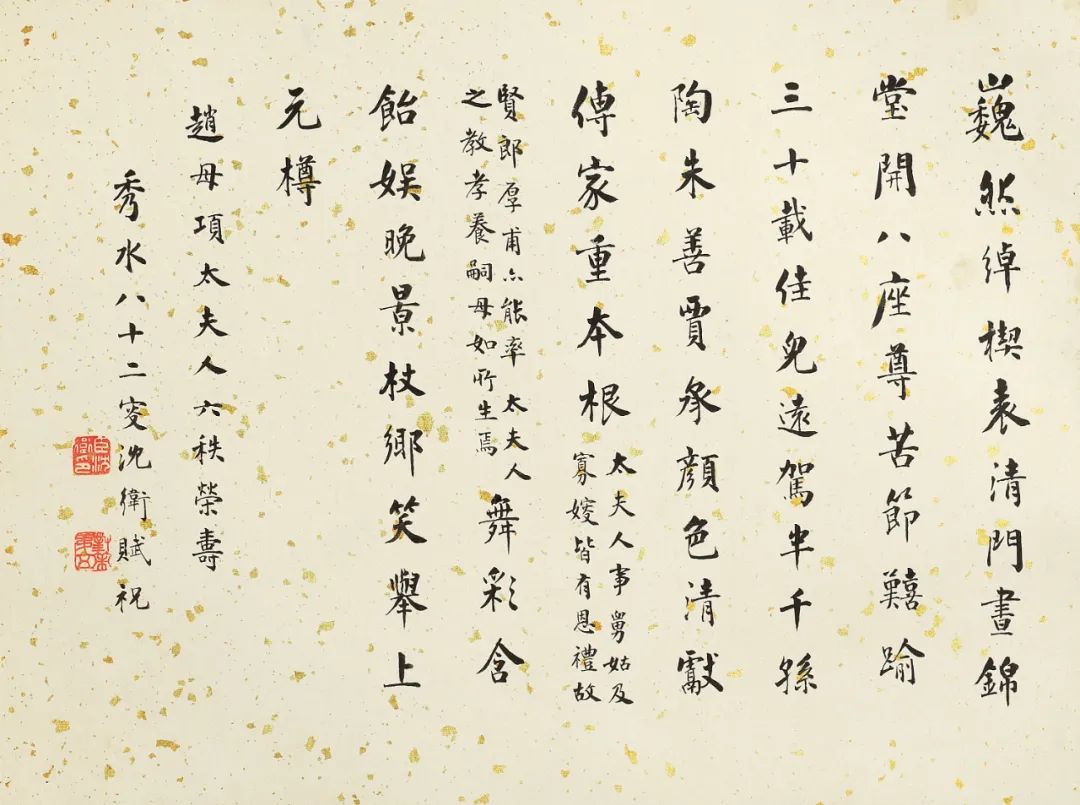 巍然綽楔表清門晝錦
堂開八座尊苦節囏踰
三十載佳兒遠駕半千孫
陶朱善賈承顏色清獻
傳家重本根
太夫人事舅姑及
寡嫂皆有恩禮故
賢郎厚甫亦能率太夫人
之教孝養嗣母如所生焉
舞彩含
飴娛晚景杖鄉笑舉上
元樽
趙母項太夫人六秩榮壽
秀水八十二叟沈衛賦祝
臣沈衛印